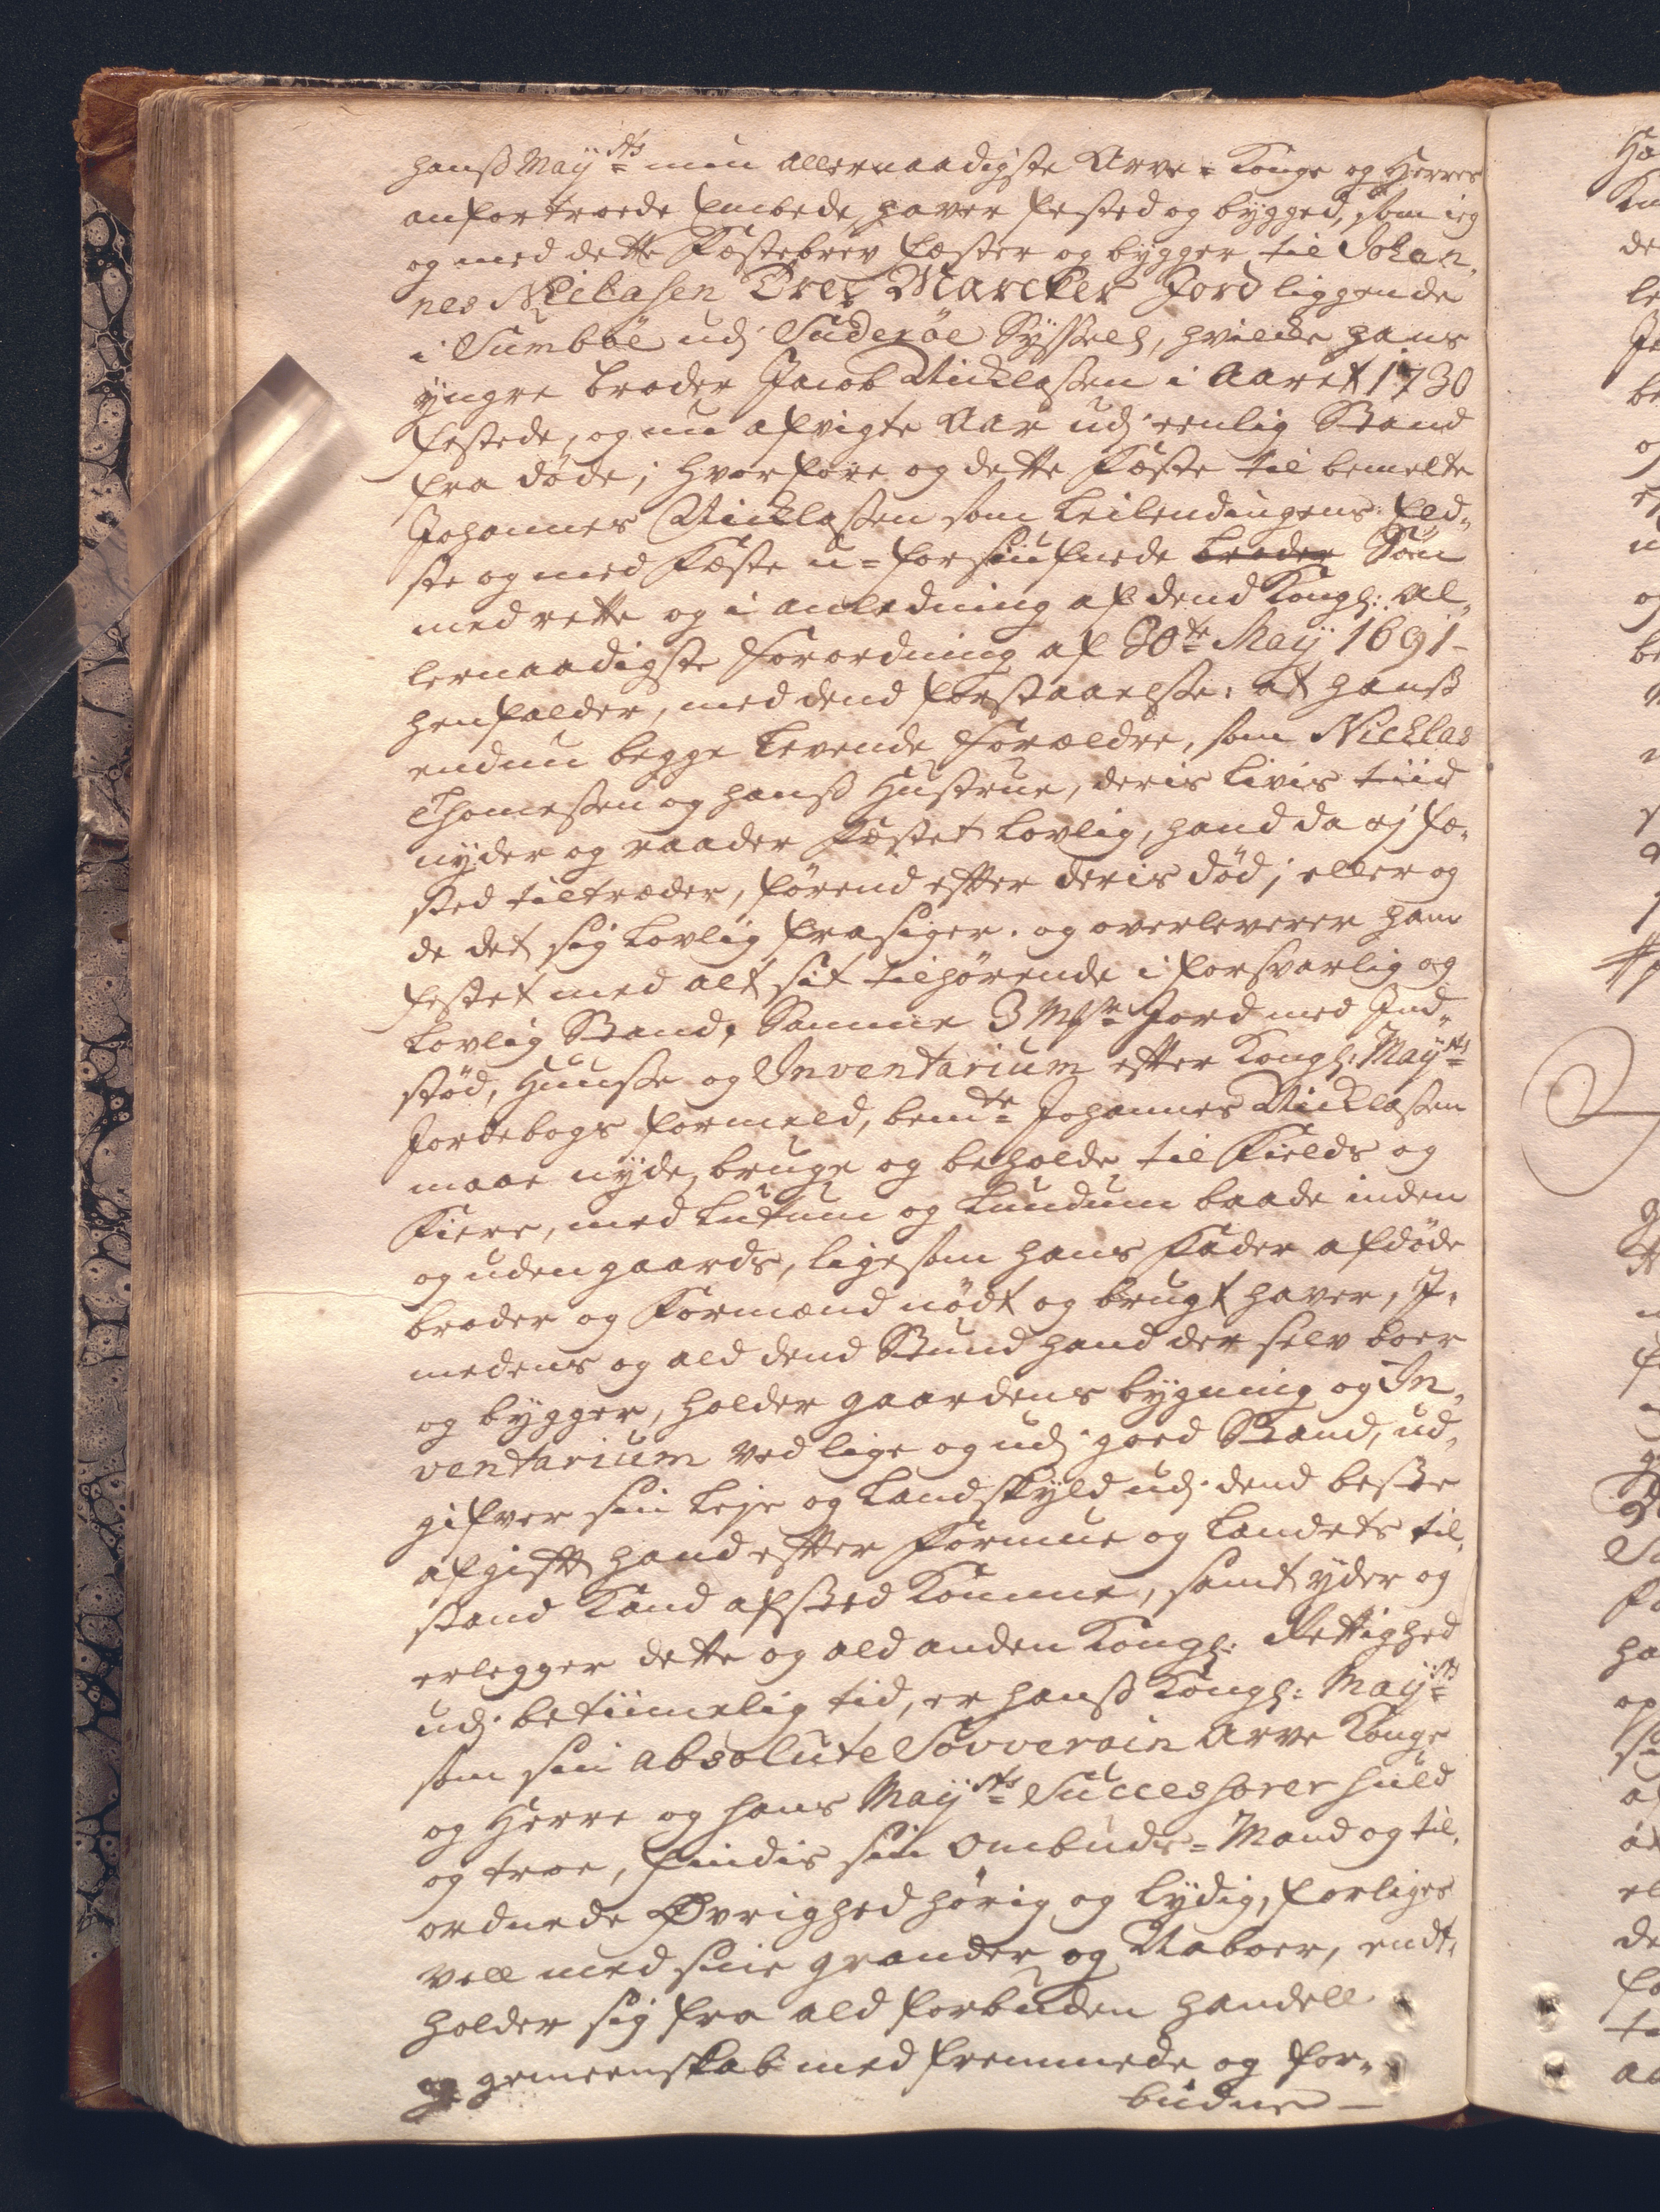 hanß Maÿ<sup>sts</sup> min allernaadigste Arve-Konge og Herres
anfortroede Embede, haver fested og bÿgged, som ieg
og med dette Fæstebrev fæster og bÿgger til Johan„
nes Nicklasen Tree Marcker Jord liggende
i Sumböe udj Suderöe Sÿsselh, hvilcke hans
ÿngre broder Jacob Nicklaßen i Aaret 1730
festede, og nu afvigte Aar udj eenlig Stand
fra döde; hvorfore og dette Fæste til bemelte
Johannes Nicklaßen som Leilendingens eld„
ste og med Fæste u-forsiufnede broder Sön
med rette og i anledning af dend Kongl: Al„
lernaadigste Forordning af 30<sup>te</sup> Maÿ 1691-
henfalder, med dend forstaaelse: at hanß
endnu begge levende Forældre, som Nicklas
Thomeßen og hanß Hustrue, deris Livis tiid
nÿder og raader Fæstet lovlig, hand da ej fæ„
sted tiltræder, förend efter deris död; eller og
de det sig lovlig frasiger. og overleverer ham
festet med alt sit tilhörende i forsvarlig og
lovlig Stand, Samme 3 Mkr Jord med Ind„
stöd, Huuse og Inventarium efter Kongl: Maÿ<sup>sts</sup>
Jordebogs formeld, bem<sup>te</sup> Johannes Nicklaßen
maae nÿde, bruge og beholde til Fields og
Fiere, med Lutum og Lundum baade inden
og uden gaards, ligesom hans Fader afdöde
broder og Formænd nödt og brugt haver, I„
medens og ald dend Stund hand der selv boer
og bÿgger, holder gaardens bÿgning og In„
ventarium ved lige og udj goed Stand, ud„
gifver sin Leje og Landskÿld udj dend beste
afgift hand efter Formue og Landets til„
stand kand afsted komme, samt ÿder og
erlegger dette og ald anden Kongl: Rettighed
udj betiimelig tid, er hanß Kongl: Maÿ<sup>sts</sup>
som sin absolute Sovverain Arve Konge
og Herre og hans Maÿ<sup>sts</sup> Successorer huld
og troe, findis sin Ombuds-Mand og til„
ordnede Øvrighed hörig og lÿdig, forliges
vell med sine grander og Naboer, endt„
holder sig fra ald forbuden handell
og gemeenskab med fremmede og for„
budne—